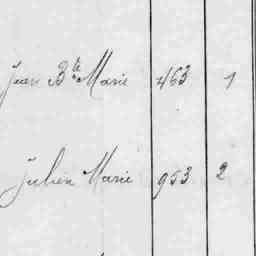 Jean Bte Marie 463 1
Julien Marie 953 2